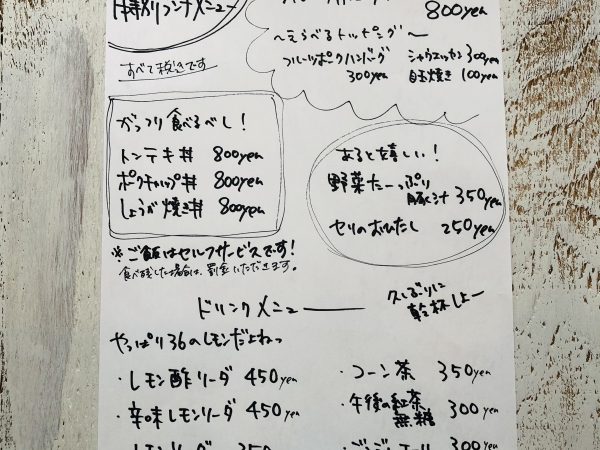 特別ランチメニュー
すべて税込です
800yen
〜えらべるトッピング〜
フルーツポークハンバーグ
300yen
シャウエッセン 300yen
目玉焼き 100yen
がっつり食べるべし!
トンテキ丼 800yen
ポークチャップ丼 800yen
しょうが焼き丼 800yen
あると嬉しい!
野菜たーっぷり
豚汁 350yen
セリのおひたし 250yen
※ご飯はセルフサービスです!
食べ残した場合は、罰金いただきます。
ドリンクメニュー
久しぶりに
乾杯しよー
やっぱり36のレモンだよねっ
・レモン酢ソーダ 450yen
・辛味レモンソーダ 450yen
・コーン茶 350yen
・午後の紅茶
無糖 300yen